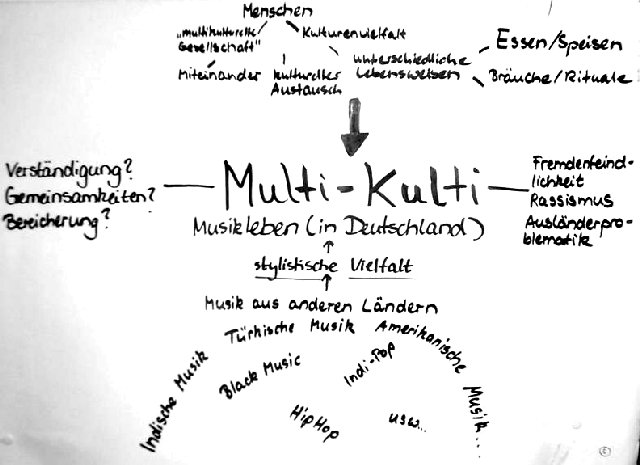 Menschen
„multikulturelle
Gesellschaft"
Kulturenvielfalt
Miteinander
kultureller
Austausch
unterschiedliche
Lebensweisen
Essen/Speisen
Bräuche/Rituale
Verständigung?
Gemeinsamkeiten?
Bereicherung?
Multi-Kulti
Musikleben (in Deutschland)
Fremdenfeind-
lichkeit
Rassismus
Ausländerpro-
blematik
stylistische Vielfalt
Musik aus anderen Ländern
Indische Musik
Türkische Musik
Amerikanische Musik...
Black Music
Indi-Pop
HipHop
usw...